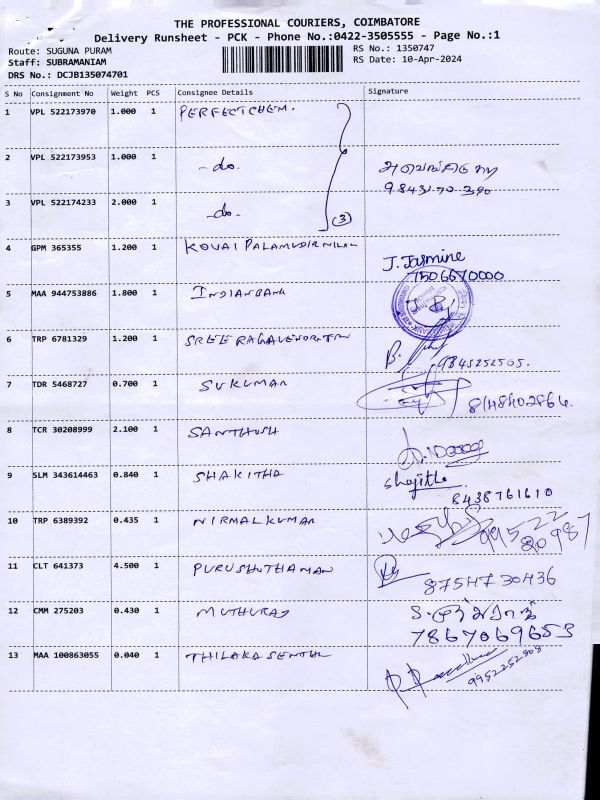 THE PROFESSIONAL COURIERS, COIMBATORE
Delivery Runsheet - PCK - Phone No.:0422-3505555 - Page No.:1
Route: SUGUNA PURAM RS No.: 1350747
Staff: SUBRAMANIAM RS Date: 10-Apr-2024
DRS No.: DCJB135074701
S No Consignment No Weight PCS Consignee Details Signature
1 VPL 522173970 1.000 1 PERFECTCHEM.
2 VPL 522173953 1.000 1 -do.
98431-70-390
3 VPL 522174233 2.000 1 -do. (3)
4 GPM 365355 1.200 1 KOVAI PALAMUDIR NILAM J. Jasmine
7506670000
5 MAA 944753886 1.800 1 INDIANBANK
6 TRP 6781329 1.200 1 SREE B.
9845252505.
7 TDR 5468727 0.700 1 SUKUMAR
8 TCR 30208999 2.100 1 SANTHOSH
9 SLM 343614463 0.840 1 SHAKITHA Shajitha
8438761610
10 TRP 6389392 0.435 1 NIRMALKUMAR 99522
20987
11 CLT 641373 4.500 1 PURUSHOTHAMAN
8754730436
12 CMM 275203 0.430 1 MUTHURAJ
7867069653
13 MAA 100863055 0.040 1 THILAKA SENTHIL
9952252808